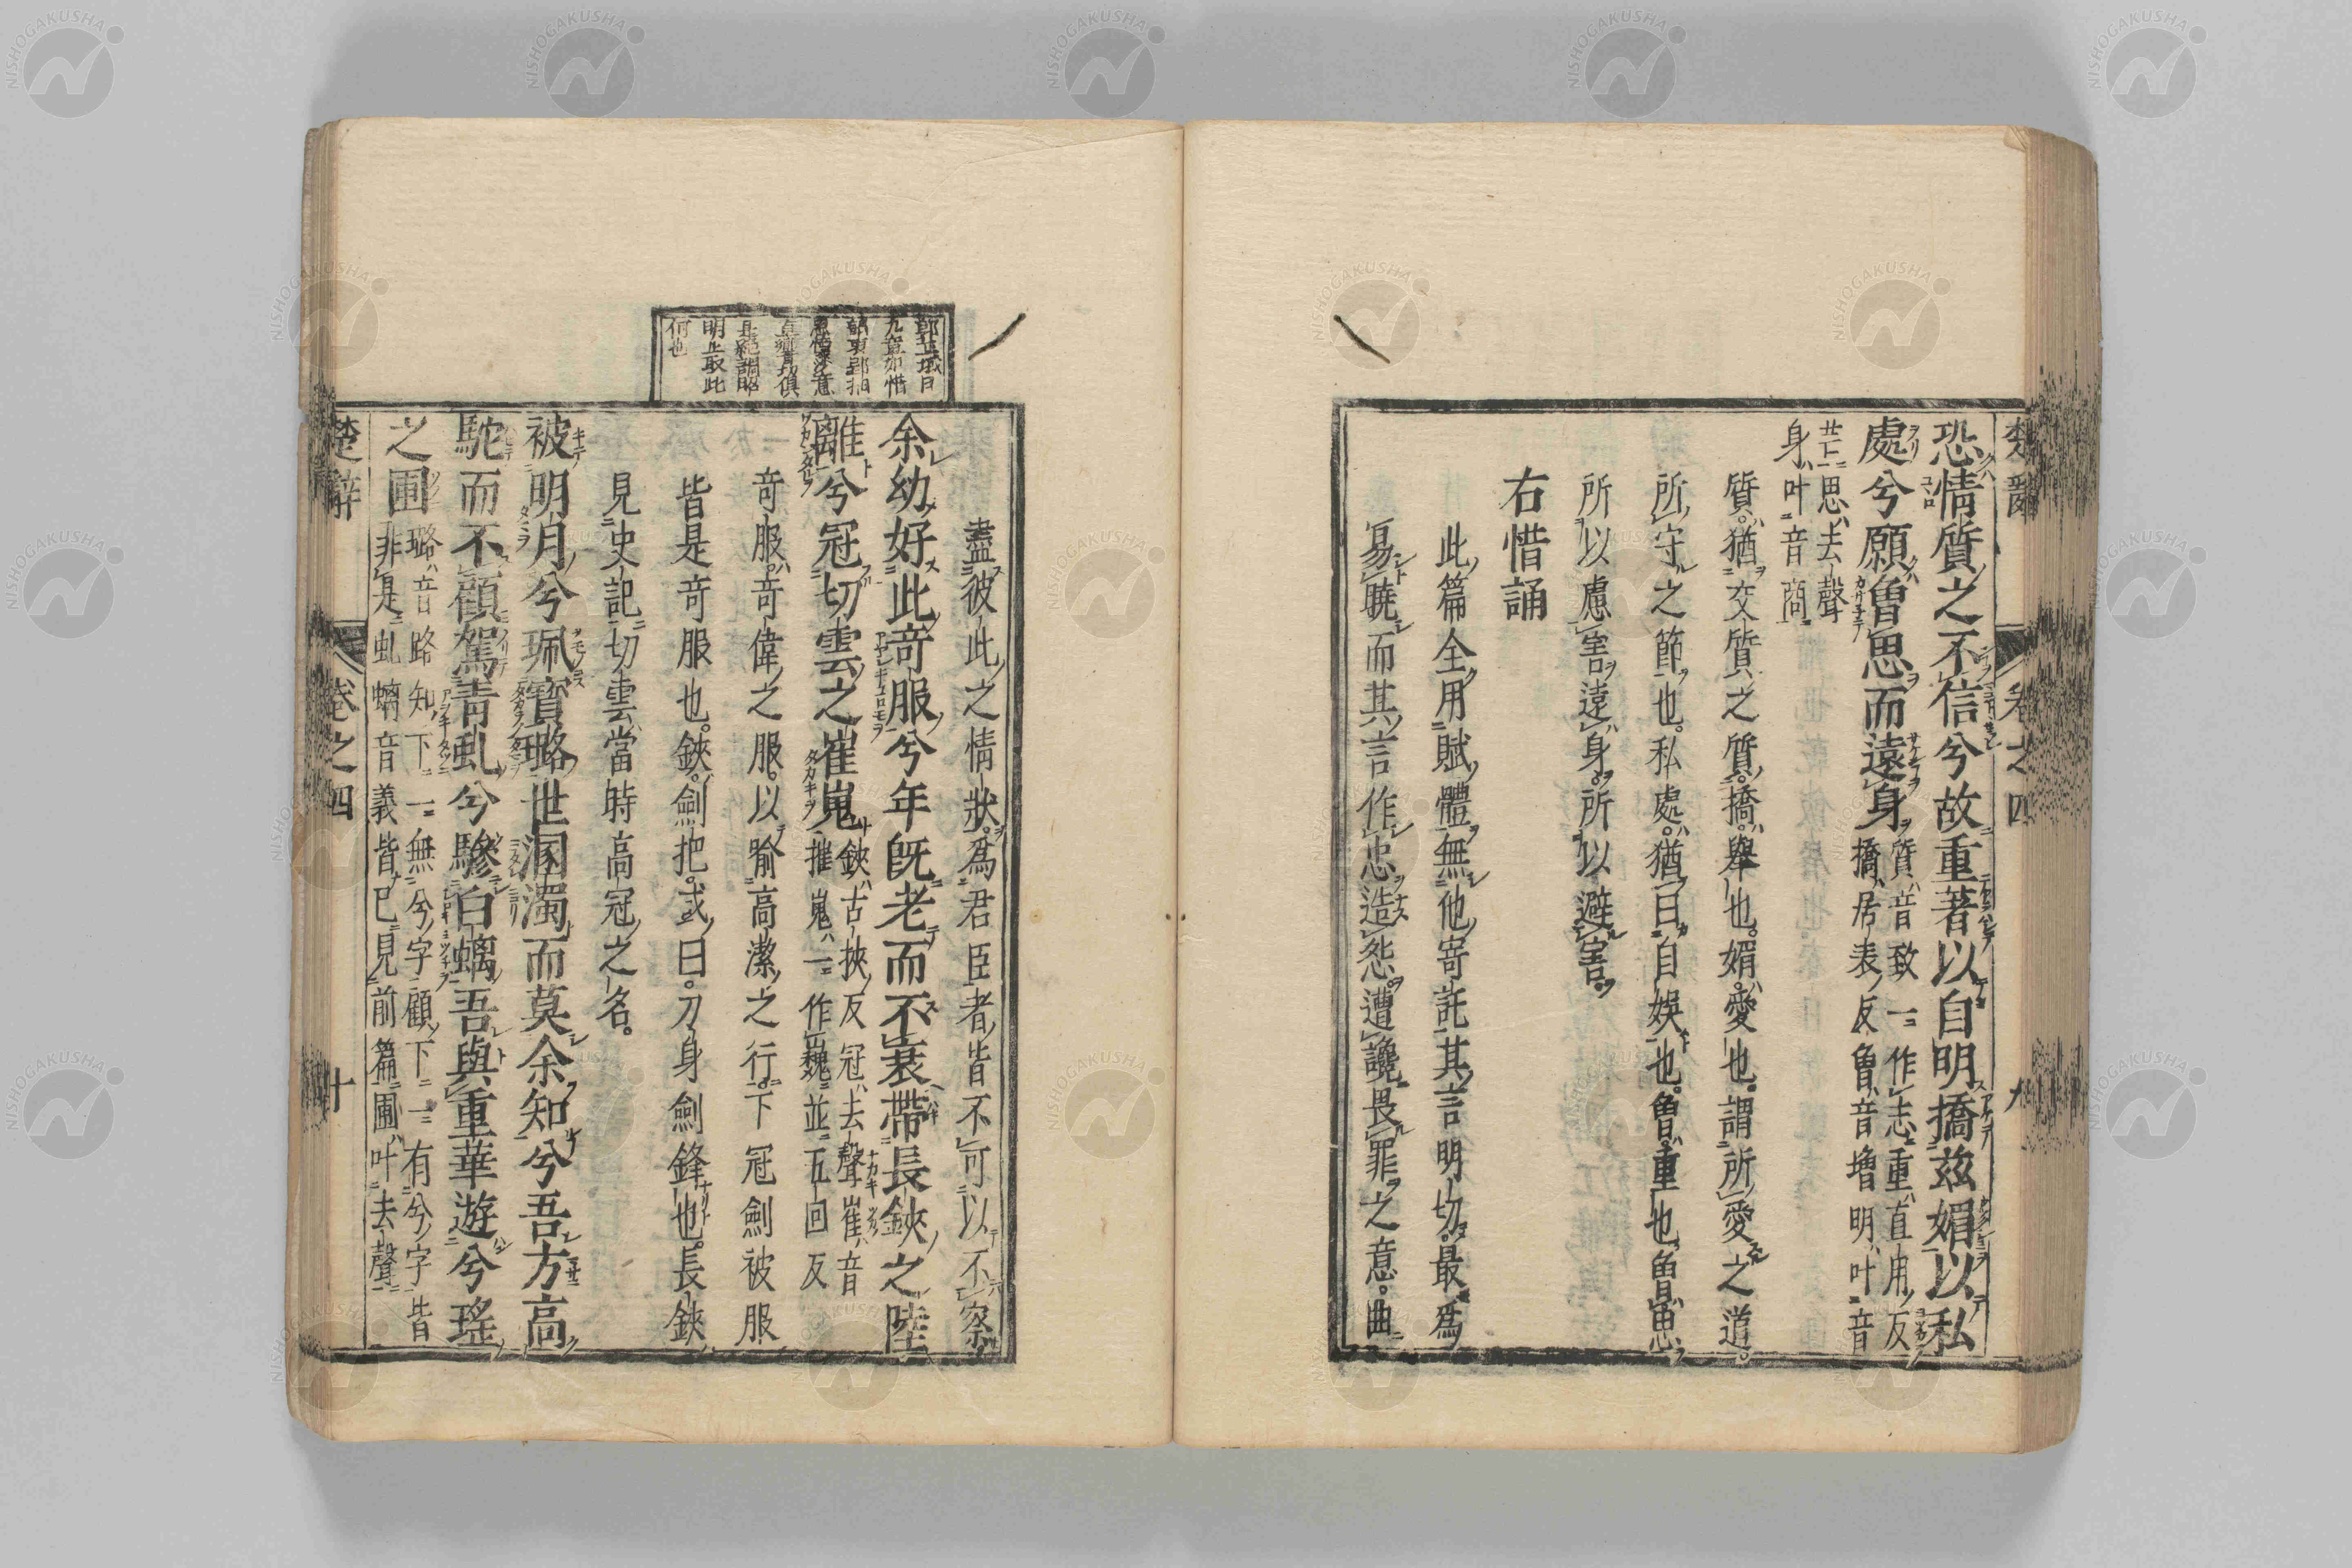 恐情質之不信兮故重著以自明撟茲媚以私
處兮願曾思而遠身
質音致一作志重直用反
撟居表反曾音增明叶音
芒上思去聲
身叶音商
質猶交質之質撟舉也媚愛也謂所愛之道
所守之節也私處猶曰自娛也曾重也曾思
所以慮害遠身所以避害
右惜誦
此篇全用賦體無他寄託其言明切最為
易曉而其言作忠造怨遭讒畏罪之意曲
楚辭
卷之四
九
盡彼此之情狀為君臣者皆不可以不察
余幼好此奇服兮年既老而不衰帶長鋏之陸
離兮冠切雲之崔嵬
鋏古挾反冠去聲崔音
摧嵬一作巍並五回反
奇服奇偉之服以喻高潔之行下冠劍被服
皆是奇服也鋏劍把或曰刀身劍鋒也長鋏
見史記切雲當時高冠之名
被明月兮珮寶璐世溷濁而莫余知兮吾方高
馳而不顧駕青虬兮驂白螭吾與重華遊兮瑤
之圃
璐音路知下一無兮字顧下一有兮字皆
非是虬螭音義皆已見前篇圃叶去聲
楚辭
卷之四
十
九章如惜
明止取此
何也